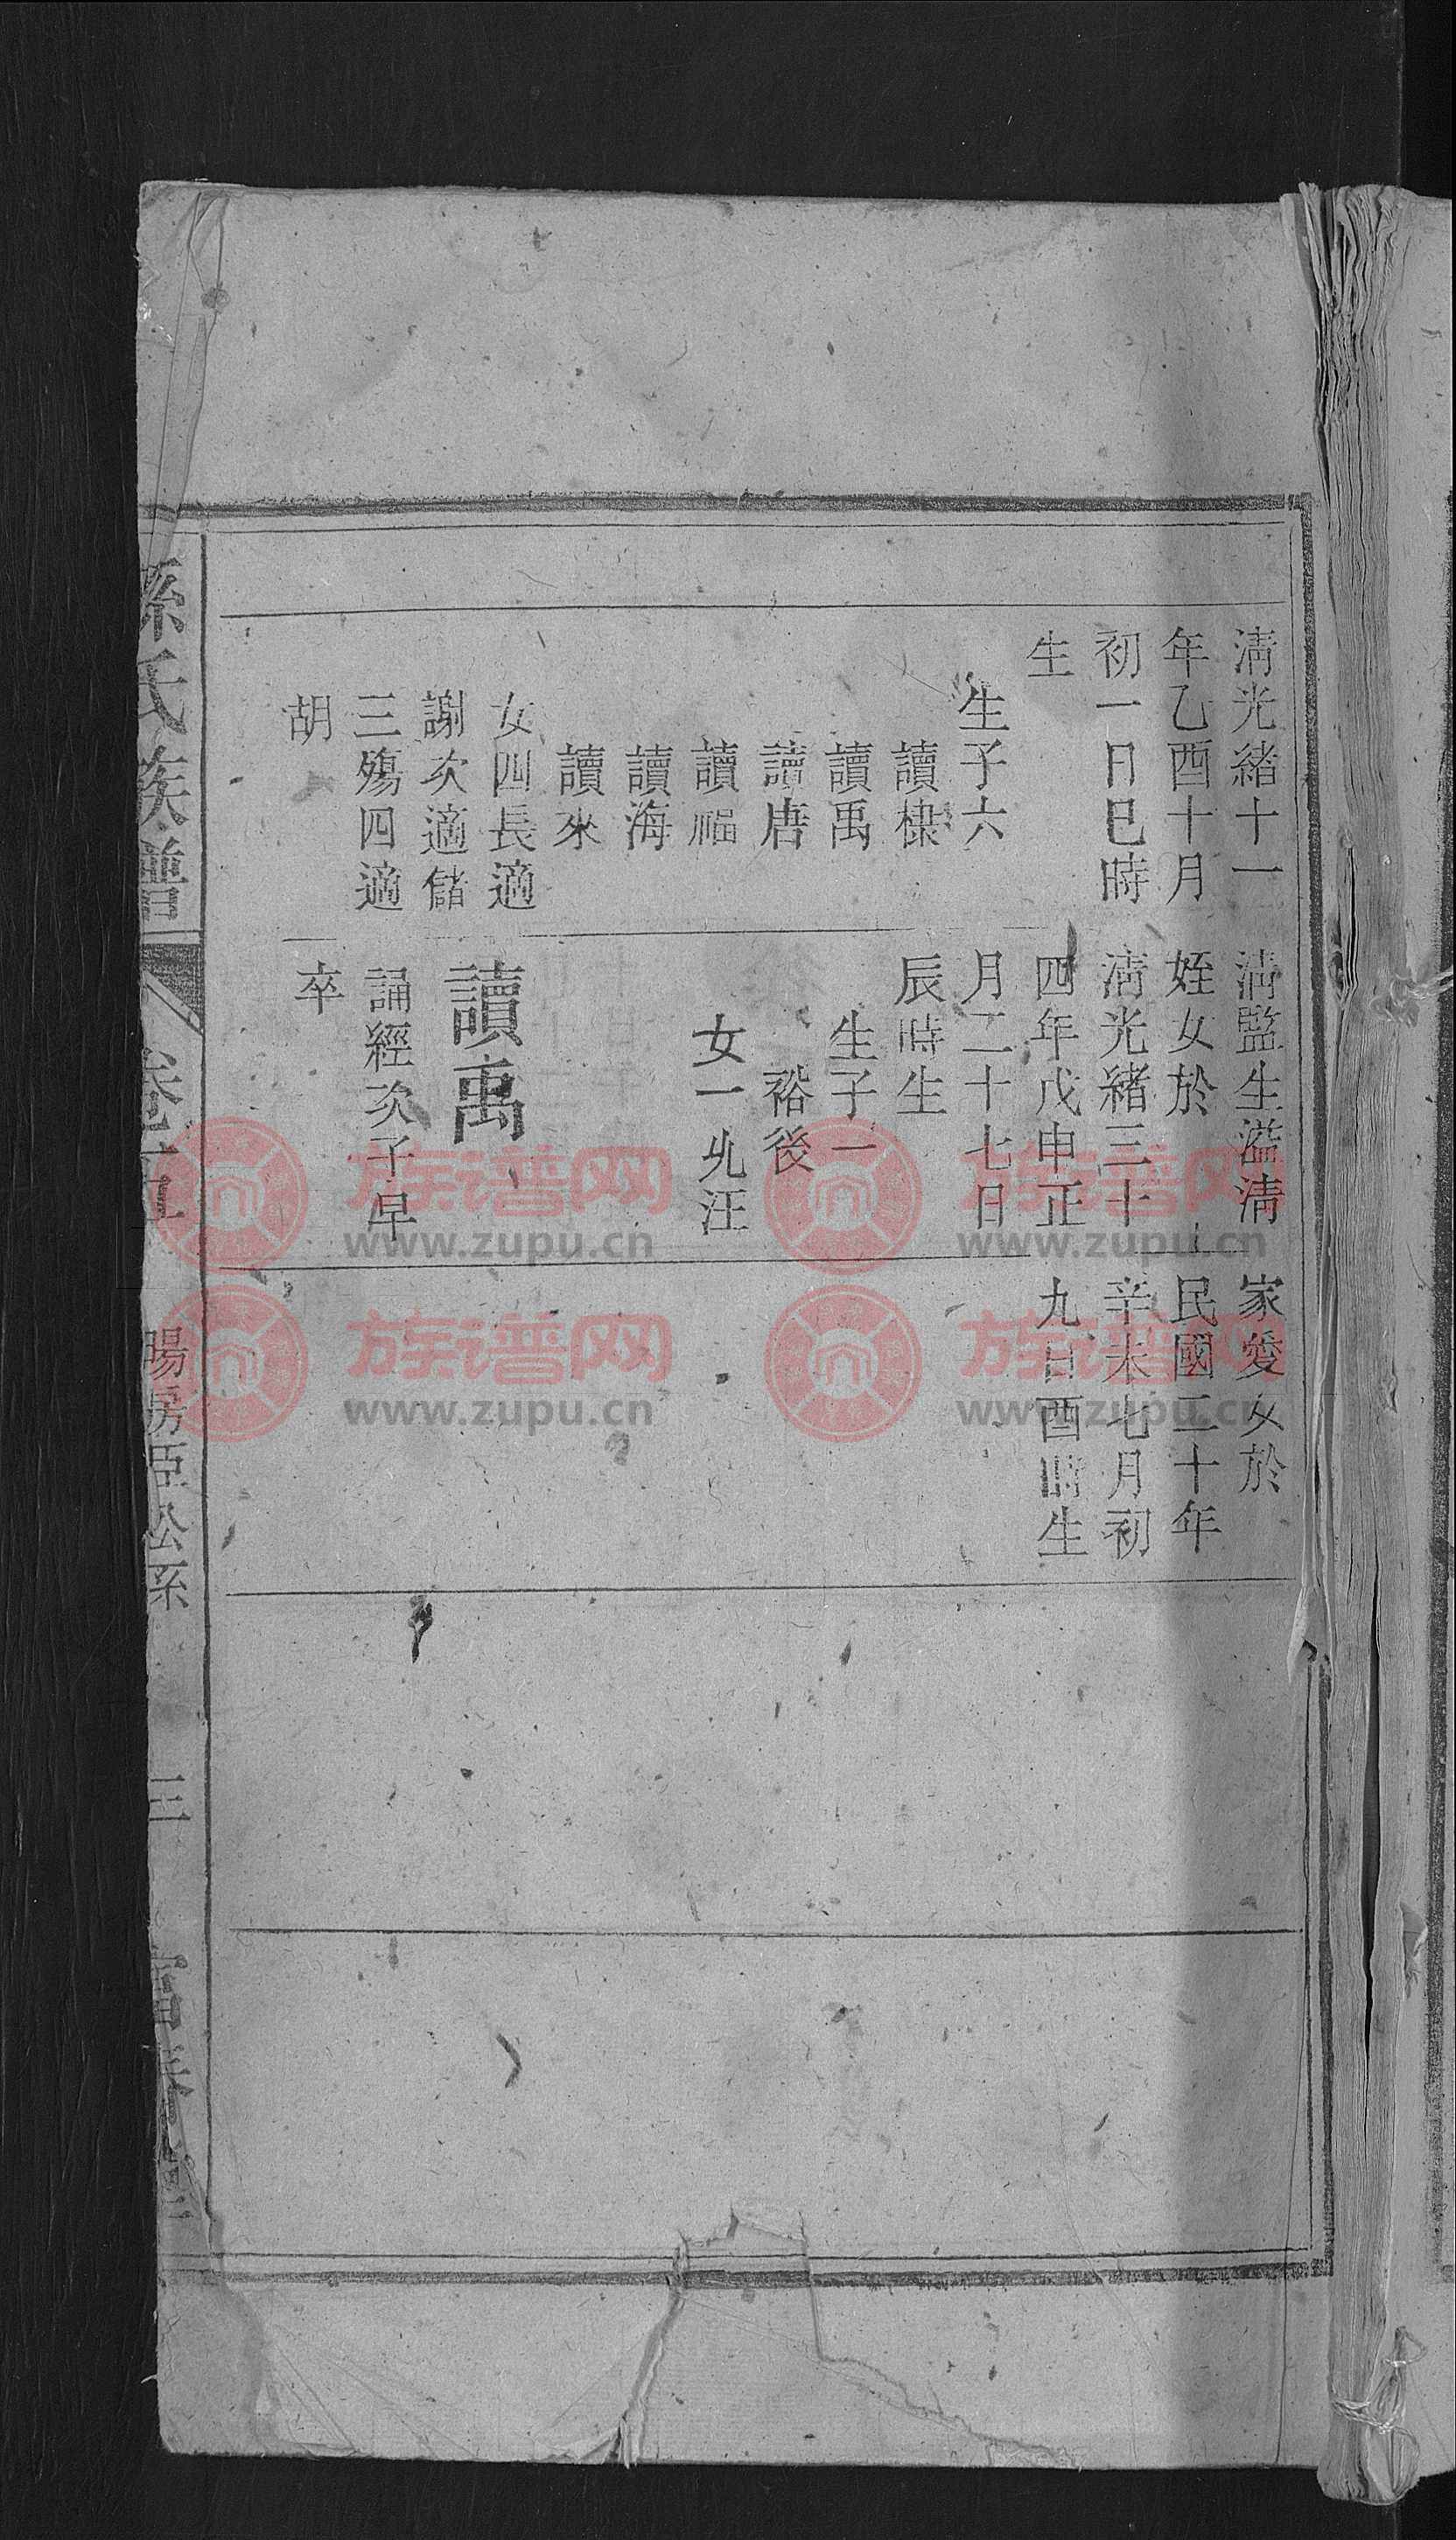 清光緒十一
年乙酉十月
初一日巳時
生
生子六
讀棣
讀禹
讀唐
讀福
讀海
讀來
女四長適
謝次適儲
三殤四適
胡
清監生溢清
姪女於
清光緒三十
四年戊申正
月二十七日
辰時生
生子一
裕後
女一乳汪
讀禹
誦經次子早
卒
家愛女於
民國二十年
辛未七月初
九日酉時生
孫氏族譜
卷五
陽房臣公系
三
族谱网
www.zupu.cn
族谱网
www.zupu.cn
族谱网
www.zupu.cn
族谱网
www.zupu.cn